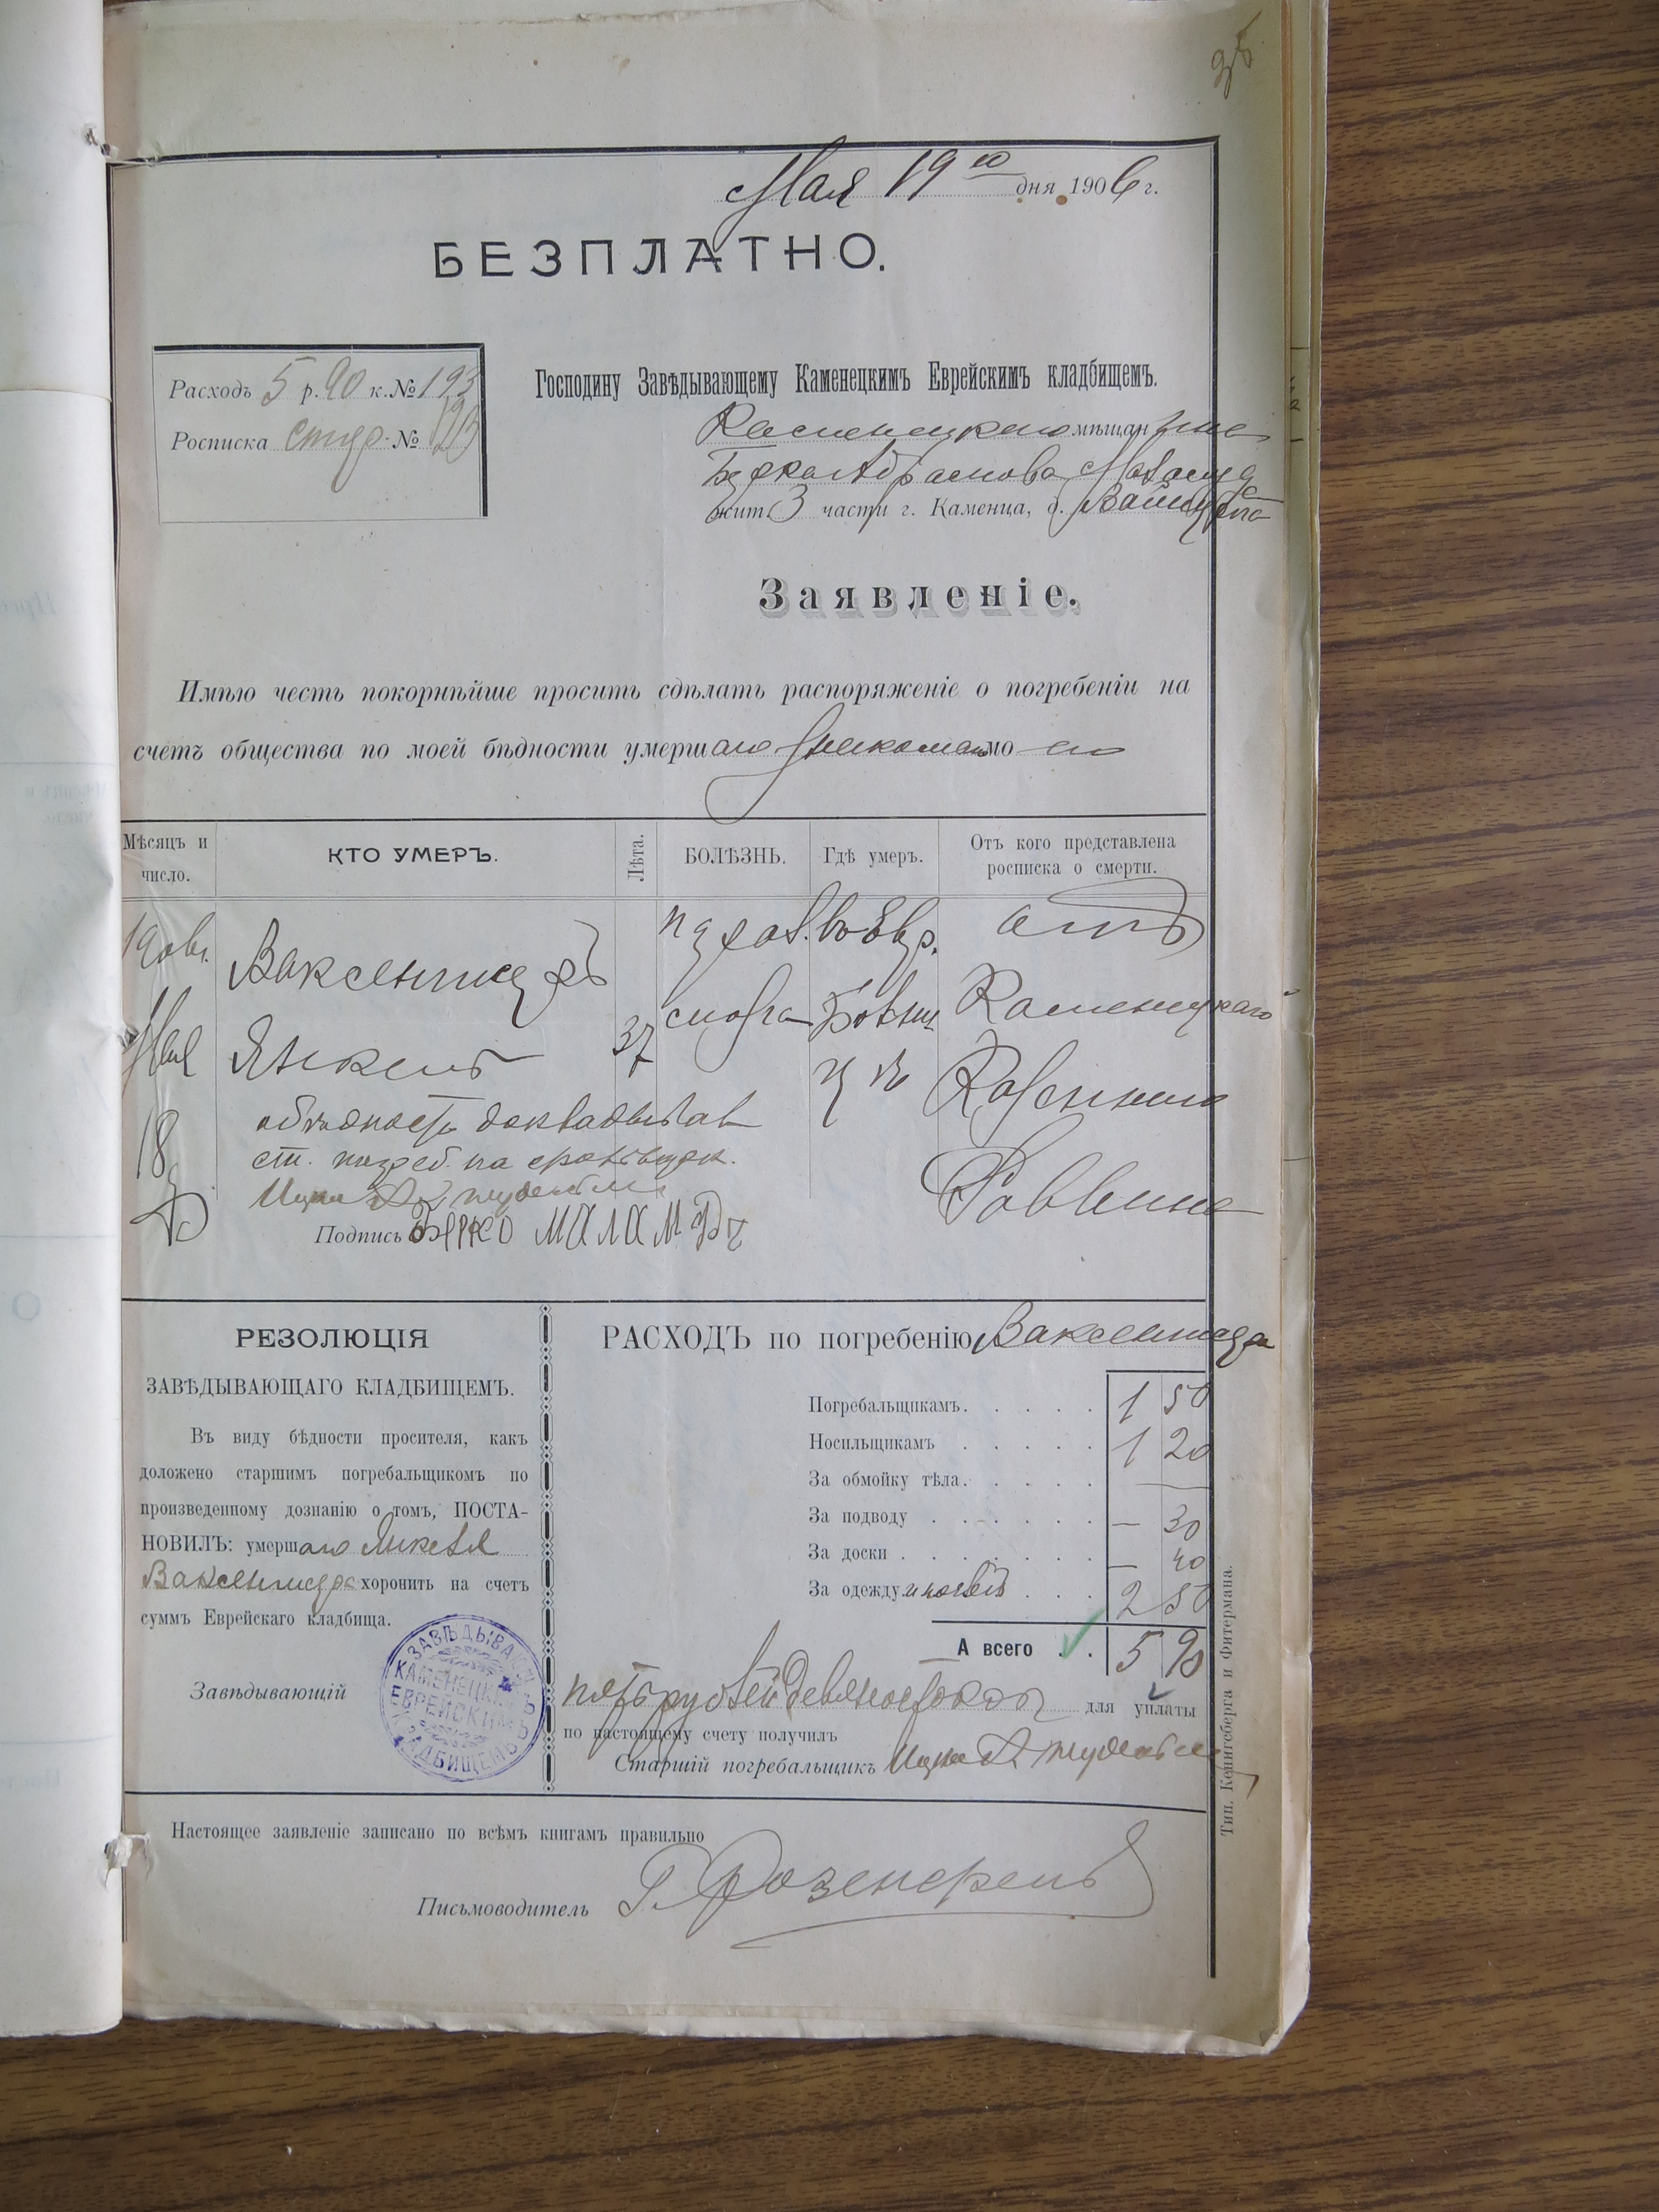 Мая 19го дня 1906 г.
БЕЗПЛАТНО.
Расходъ 5 р. 90 к. № 193
Росписка №
Господину Завѣдывающему Каменецкимъ Еврейскимъ кладбищемъ.
Каменецкаго мѣщанина
Берка Абрамова Маламуда
жит. 3 части г. Каменца, д.
Заявленіе.
Имѣю честь покорнѣйше просить сдѣлать распоряженіе о погребеніи на
счетъ общества по моей бѣдности умершаго знакомаго моего
Мѣсяцъ и число.
КТО УМЕРЪ.
Лѣта.
БОЛѢЗНЬ.
Гдѣ умеръ.
Отъ кого представлена росписка о смерти.
Мая
18
Ваксенштедъ
Янкель
37
мозга
въ Евр.
Больницѣ
отъ
Каменецкаго
Казеннаго
Раввина
обѣдность докладывалъ
ст. погреб.
Подпись Берко Маламудъ
РЕЗОЛЮЦІЯ
ЗАВѢДЫВАЮЩАГО КЛАДБИЩЕМЪ.
Въ виду бѣдности просителя, какъ
доложено старшимъ погребальщикомъ по
произведенному дознанію о томъ, ПОСТА-
НОВИЛЪ: умершаго Янкеля
Ваксенштеда хоронить на счетъ
суммъ Еврейскаго кладбища.
Завѣдывающій
ЗАВѢДЫВАЮЩІЙ КАМЕНЕЦКИМЪ ЕВРЕЙСКИМЪ КЛАДБИЩЕМЪ
РАСХОДЪ по погребенію Ваксенштеда
Погребальщикамъ. 1 50
Носильщикамъ 1 20
За обмойку тѣла. —
За подводу — 30
За доски — 40
За одежду 2 50
А всего 5 90
пять рублей девяносто коп для уплаты
по настоящему счету получилъ
Старшій погребальщикъ
Настоящее заявленіе записано по всѣмъ книгамъ правильно
Письмоводитель
Тип. Кенигсберга и Фитермана.